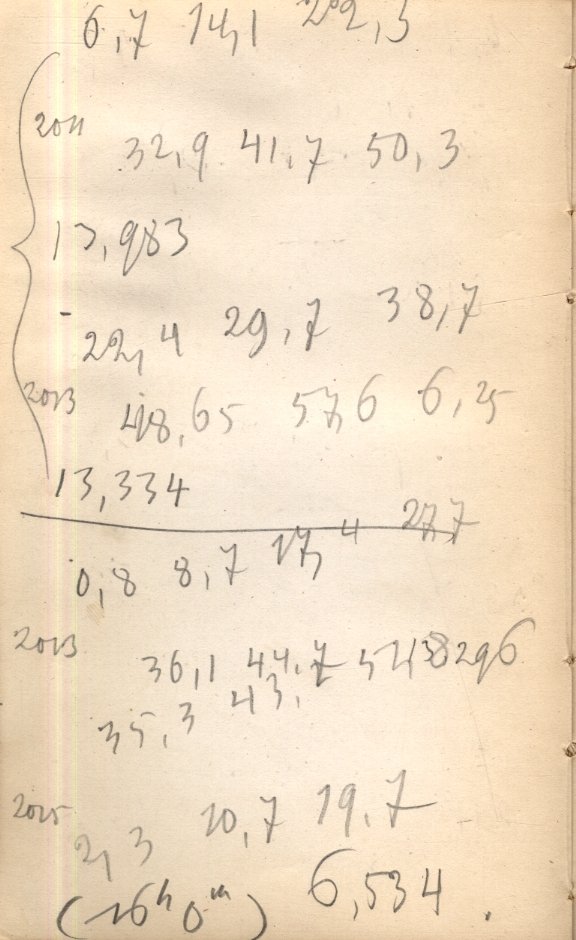 6,7 14,1 22,3
2011
32,9 41,7 50,3
13,983
22,4 29,7 38,7
2013
48,65 57,6 6,25
13,334
27,7
0,8 8,7 17,4
2013
36,1 44,7
35,3 43,
2015
2,3 10,7 19,7
(16h 0m) 6,534.